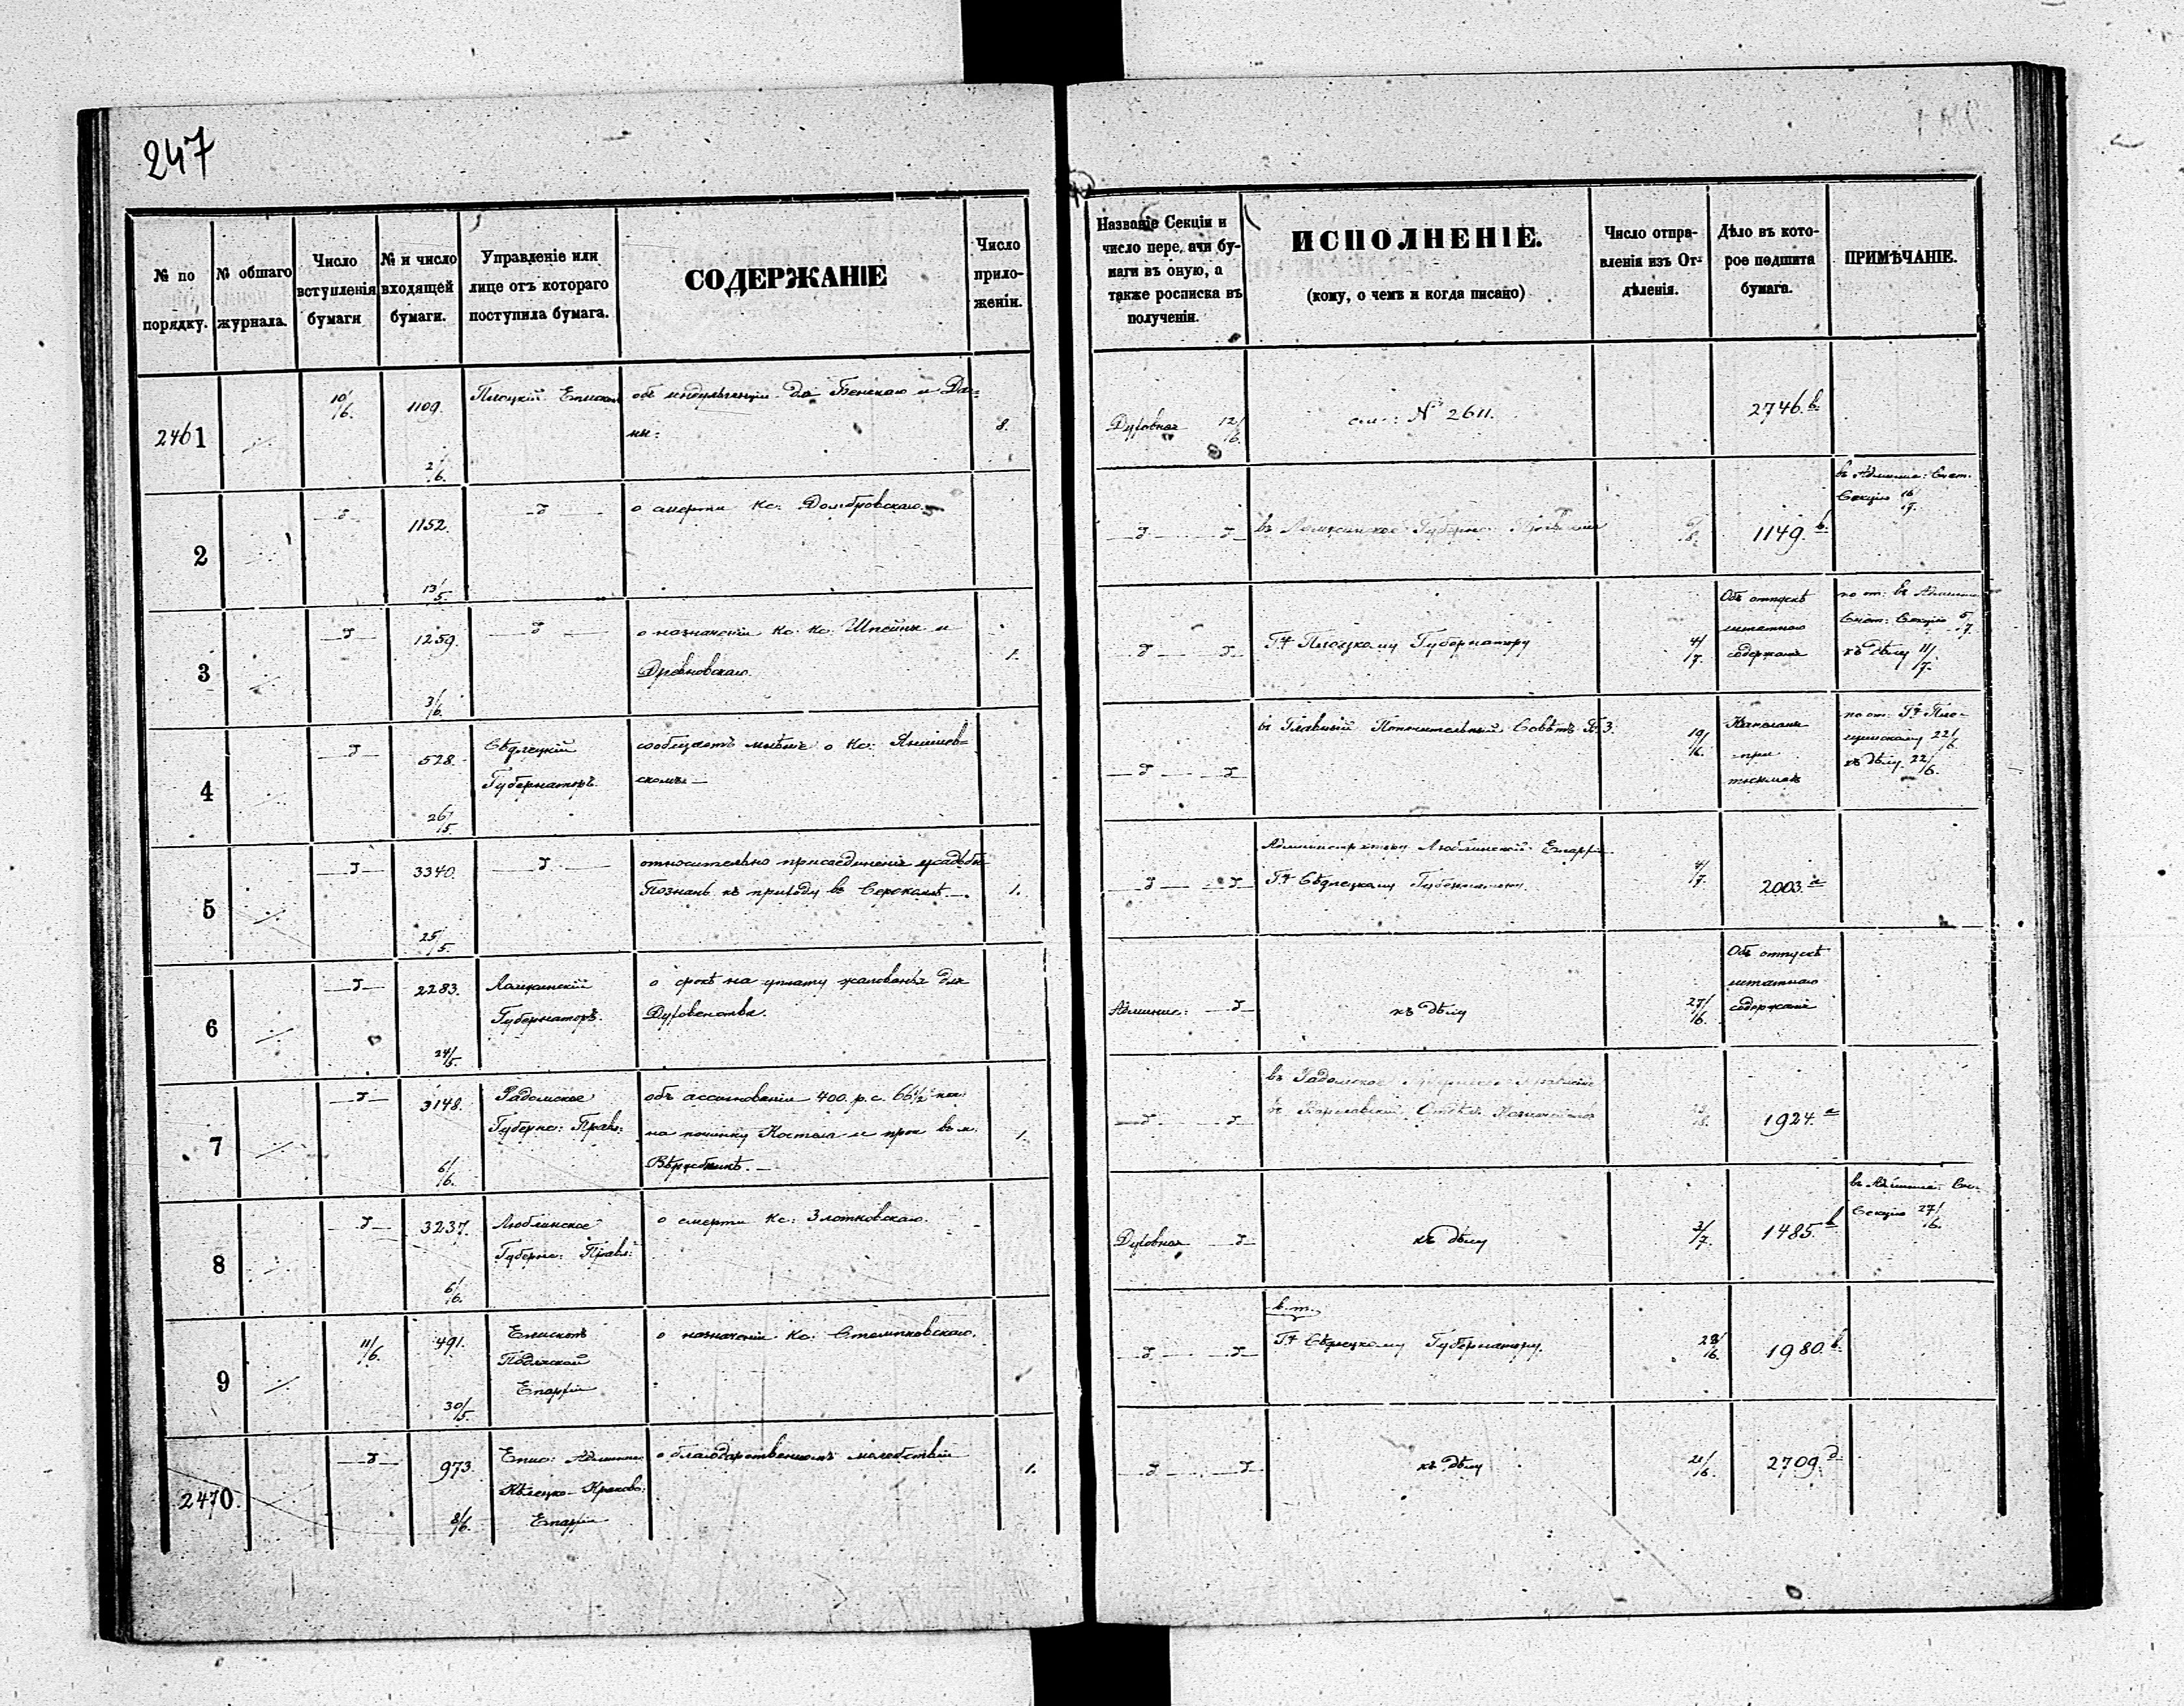 247
№ по порядку.
№ общаго журнала.
Число вступленія бумаги
№ и число входящей бумаги.
Управленіе или лице отъ котораго поступила бумага.
СОДЕРЖАНІЕ
Число приложеніи.
Названіе Секціи и число передачи бумаги въ оную, а также росписка въ полученіи.
ИСПОЛНЕНІЕ.
(кому, о чемъ и когда писано)
Число отправленія изъ Отдѣленія.
Дѣло въ которое подшита бумага.
ПРИМѢЧАНІЕ.
2461
10/6.
1109.
2/6.
Плоцкій Епископ
объ индульгенціи
8.
Духовная 12/6.
см: № 2611.
2746. в.
2
1152.
13/5.
о смерти Кс: Домбровскаго
Губерн: Правленіе
1149. в.
въ Админис: Счет.
Секцію 16/7.
3
1259.
3/6.
о назначеніи Кс: Кс: и
1.
Гну Плоцкому Губернатору
4/7.
Объ отпускѣ
штатнаго
содержанія
по от: въ Админис
Счет: Секцію 5/7.
къ дѣлу 11/7.
4
528.
26/5.
Сѣдлецкій
Губернаторъ.
сообщаетъ мнѣніе о Кс: Янишев-
скомъ—
въ Главный Попечительный Совѣтъ
19/6.
Капелани
при
тюрьмахъ
по от:
22/6.
къ дѣлу 22/6.
5
3340.
25/5.
относительно присоединенія усадьбы
Познань къ приходу въ Серокомлѣ—.
1.
Администратору Люблинской Епархіи
Гну Сѣдлецкому Губернатору.
4/7.
2003. а
6
2283.
24/5.
Ломжинскій
Губернаторъ.
о срокѣ на уплату жалованья для
Духовенства.
Админис:
къ дѣлу
27/6.
Объ отпускѣ
штатнаго
содержанія
7
3148.
6/6.
Радомское
Губернс: Правл:
объ ассигнованіи 400. р. с. 66½ коп:
на починку Костела и проч въ м.
1.
въ Радомское Губернское Правленіе
въ Варшавскій
1924. а
8
3237.
6/6.
Люблинское
Губернс: Правл:
о смерти Кс: Злотковскаго.
Духовная
къ дѣлу
3/7.
1485. в
въ Админис: Сч.
Секцію 27/6.
9
11/6.
491.
30/5.
Епископъ
Подляской
Епархіи
о назначеніи Кс: Стемпковскаго.
в. т.
Гну Сѣдлецкому Губернатору.
28/6.
1980. в.
2470.
973.
8/6.
Епис: Админис
Кѣлецко-Краков:
Епархіи
о благодарственномъ молебствіи
1.
къ дѣлу
21/6.
2709. д